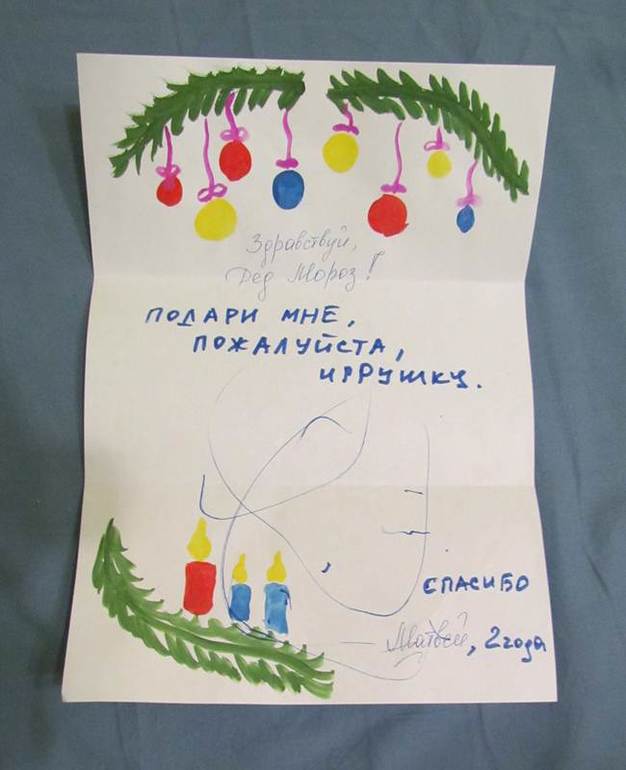 Здравствуй,
Дед Мороз!
ПОДАРИ МНЕ,
ПОЖАЛУЙСТА,
ИГРУШКУ.
СПАСИБО
— Матвей, 2 года